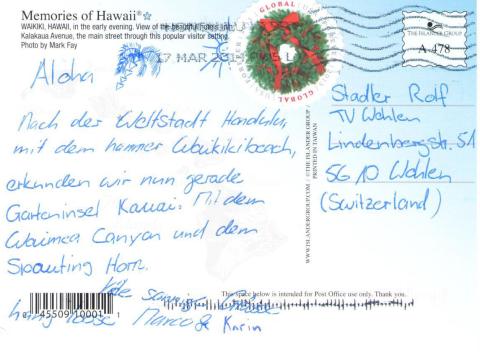 Memories of Hawaii®
WAIKIKI, HAWAII, in the early evening. View of the beautiful
Kalakaua Avenue, the main street through this popular visitor setting.
Photo by Mark Fay
17 MAR
GLOBAL
GLOBAL
THE ISLANDER GROUP
A-478
Aloha
Nach der Weltstadt Honolulu,
mit dem hammer Waikikibeach,
erkunden wir nun gerade
Garteninsel Kauai. Mit dem
Waimea Canyon und dem
Spouting Horn.
Marco & Karin
Stadler Rolf
TV Wohlen
Lindenbergstr. 51
5610 Wohlen
(Switzerland)
WWW.ISLANDERGROUP.COM © THE ISLANDER GROUP
PRINTED IN TAIWAN
This space below is intended for Post Office use only. Thank you.
0 45509 10001 1